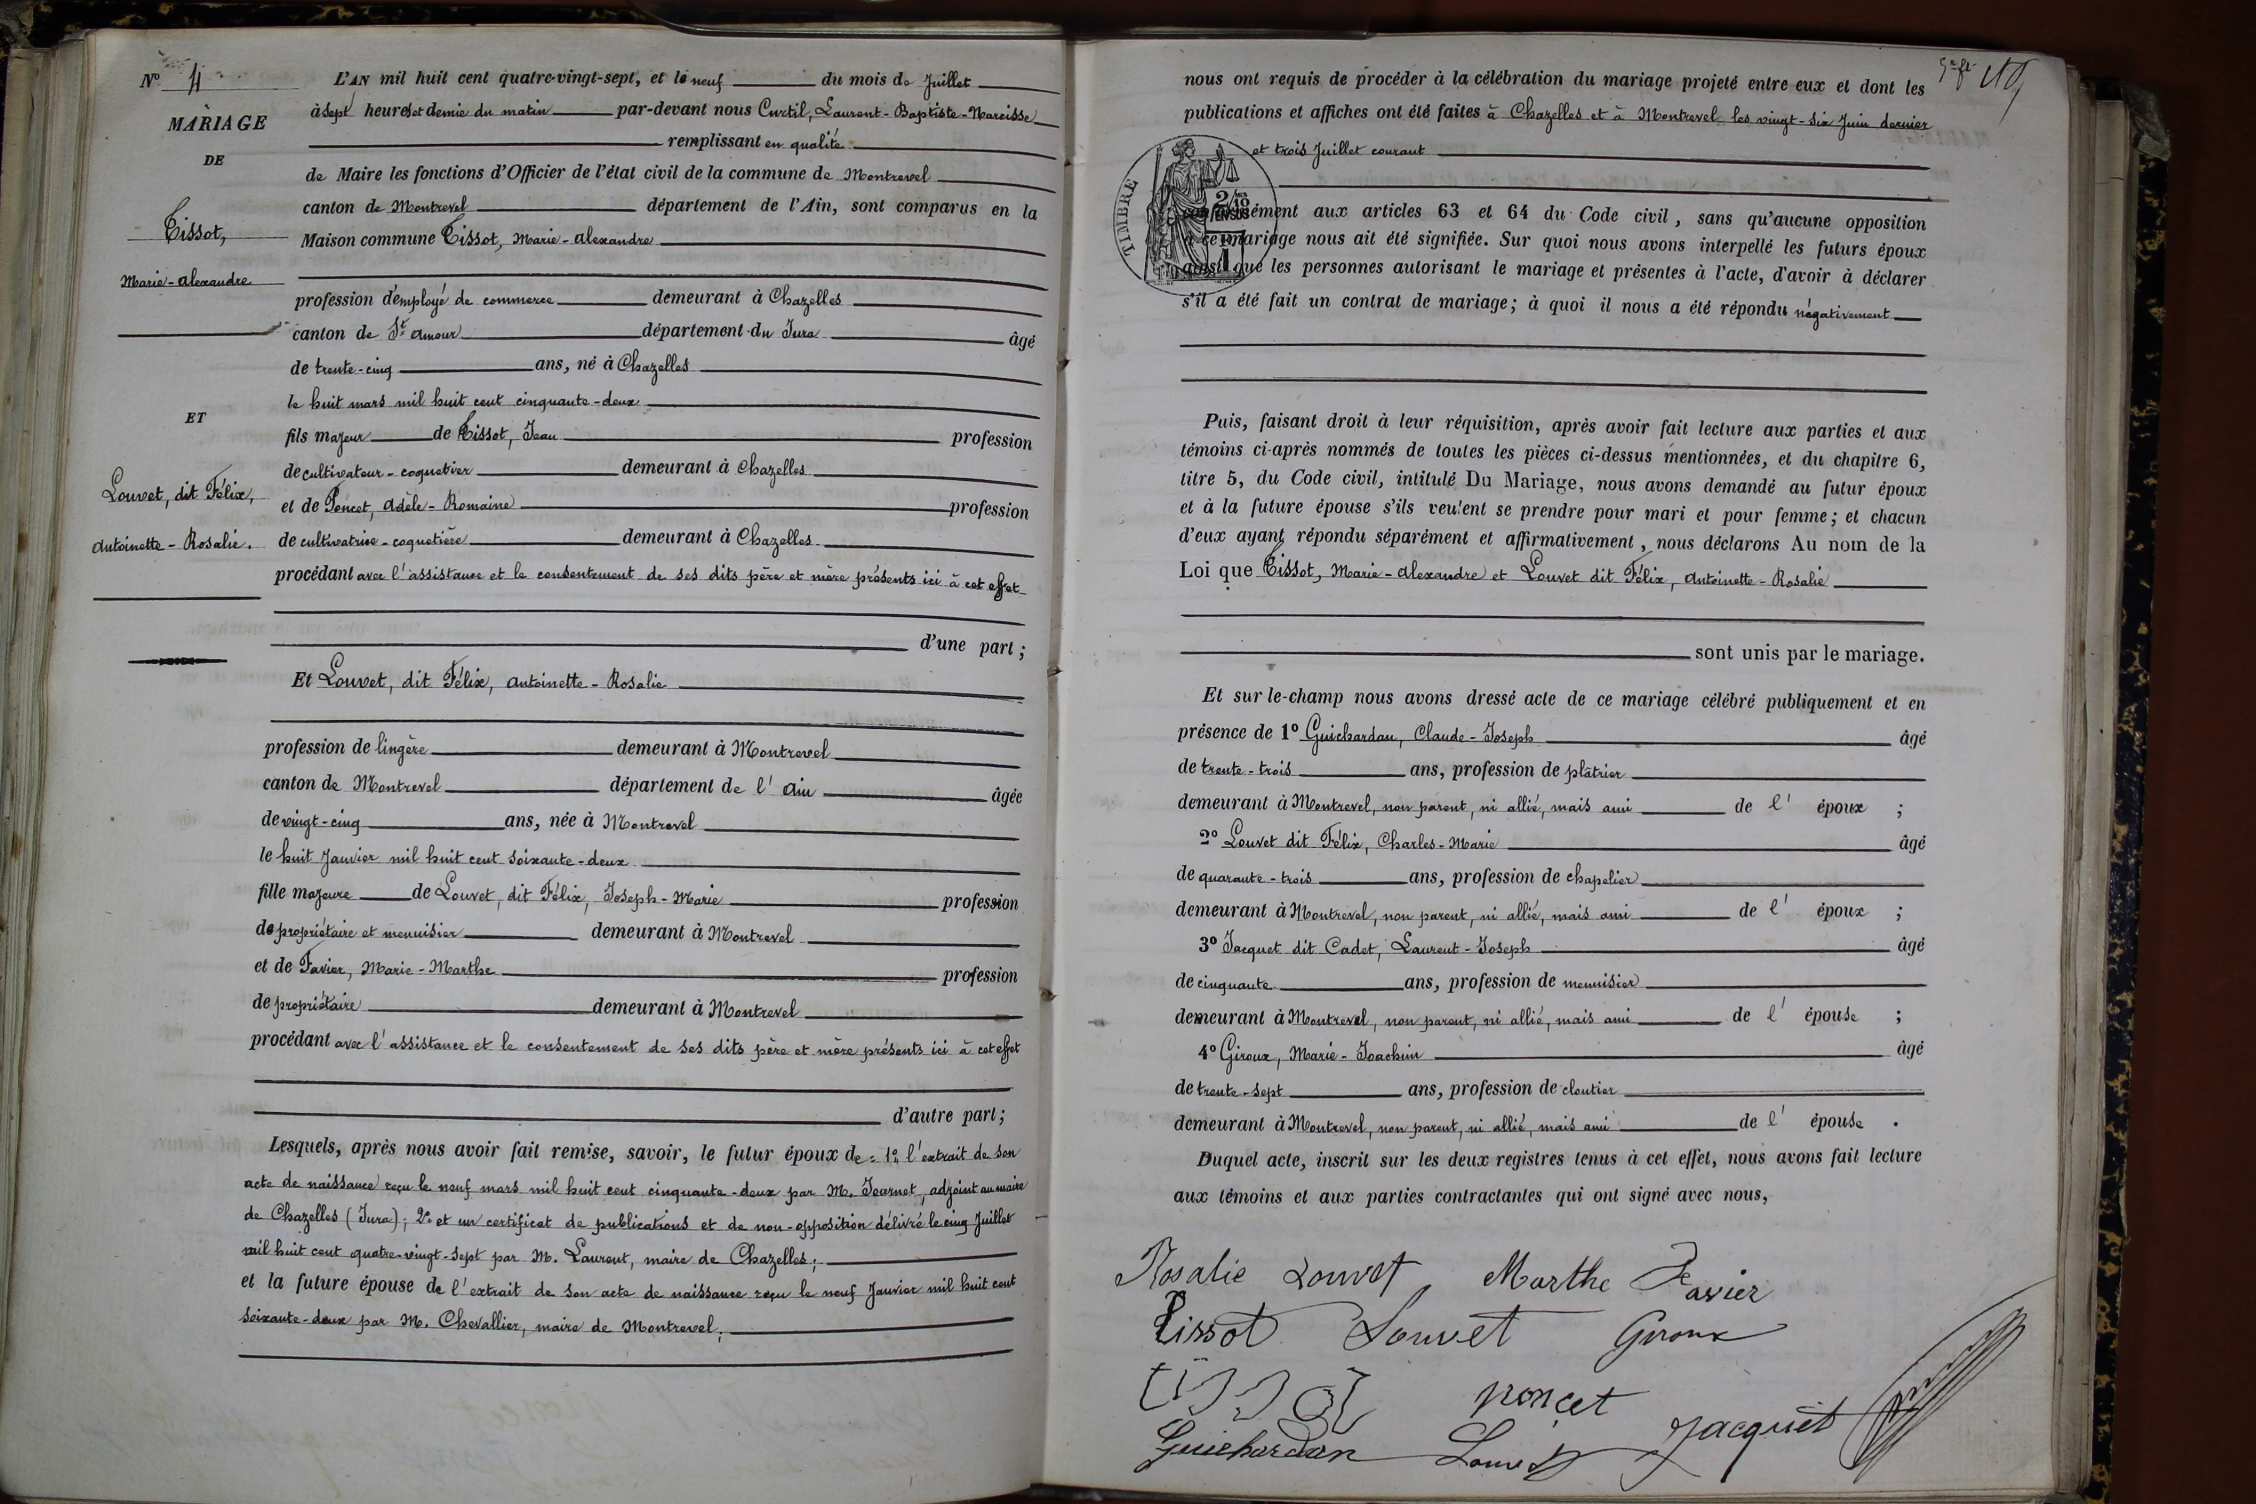 Nº 4
MARIAGE
DE
Tissot,
Marie-Alexandre
ET
Louvet, dit Félix,
Antoinette-Rosalie.
L'AN mil huit cent quatre-vingt-sept, et le neuf du mois de Juillet
à sept heures et demie du matin par-devant nous Curtil, Laurent-Baptiste-Narcisse
remplissant en qualité
de Maire les fonctions d'Officier de l'état civil de la commune de Montrevel
canton de Montrevel département de l'Ain, sont comparus en la
Maison commune Tissot, Marie-Alexandre
profession d'employé de commerce demeurant à Chazelles
canton de St Amour département du Jura âgé
de trente-cinq ans, né à Chazelles
le huit mars mil huit cent cinquante-deux
fils majeur de Tissot, Jean profession
de cultivateur-coquetier demeurant à Chazelles
et de Poncet, Adèle-Romaine profession
de cultivatrice-coquetière demeurant à Chazelles
procédant avec l'assistance et le consentement de ses dits père et mère présents ici à cet effet
d'une part;
Et Louvet, dit Félix, Antoinette-Rosalie
profession de lingère demeurant à Montrevel
canton de Montrevel département de l'Ain âgée
de vingt-cinq ans, née à Montrevel
le huit Janvier mil huit cent soixante-deux
fille majeure de Louvet, dit Félix, Joseph-Marie profession
de propriétaire et menuisier demeurant à Montrevel
et de Favier, Marie-Marthe profession
de propriétaire demeurant à Montrevel
procédant avec l'assistance et le consentement de ses dits père et mère présents ici à cet effet
d'autre part;
Lesquels, après nous avoir fait remise, savoir, le futur époux de: 1º l'extrait de son
acte de naissance reçu le neuf mars mil huit cent cinquante-deux par M. Journet, adjoint au maire
de Chazelles (Jura); 2º et un certificat de publications et de non-opposition délivré le cinq Juillet
mil huit cent quatre-vingt-sept par M. Laurent, maire de Chazelles;
et la future épouse de l'extrait de son acte de naissance reçu le neuf Janvier mil huit cent
soixante-deux par M. Chevallier, maire de Montrevel;
nous ont requis de procéder à la célébration du mariage projeté entre eux et dont les
publications et affiches ont été faites à Chazelles et à Montrevel les vingt-six Juin dernier
et trois Juillet courant
TIMBRE
conformément aux articles 63 et 64 du Code civil, sans qu'aucune opposition
à ce mariage nous ait été signifiée. Sur quoi nous avons interpellé les futurs époux
ainsi que les personnes autorisant le mariage et présentes à l'acte, d'avoir à déclarer
s'il a été fait un contrat de mariage; à quoi il nous a été répondu négativement
Puis, faisant droit à leur réquisition, après avoir fait lecture aux parties et aux
témoins ci-après nommés de toutes les pièces ci-dessus mentionnées, et du chapitre 6,
titre 5, du Code civil, intitulé Du Mariage, nous avons demandé au futur époux
et à la future épouse s'ils veulent se prendre pour mari et pour femme; et chacun
d'eux ayant répondu séparément et affirmativement, nous déclarons Au nom de la
Loi que Tissot, Marie-Alexandre et Louvet dit Félix, Antoinette-Rosalie
sont unis par le mariage.
Et sur-le-champ nous avons dressé acte de ce mariage célébré publiquement et en
présence de 1º Guichardan, Claude-Joseph âgé
de trente-trois ans, profession de plâtrier
demeurant à Montrevel, non parent, ni allié, mais ami de l'époux ;
2º Louvet dit Félix, Charles-Marie âgé
de quarante-trois ans, profession de chapelier
demeurant à Montrevel, non parent, ni allié, mais ami de l'époux ;
3º Jacquet dit Cadet, Laurent-Joseph âgé
de cinquante ans, profession de menuisier
demeurant à Montrevel, non parent, ni allié, mais ami de l'épouse ;
4º Giroux, Marie-Joachim âgé
de trente-sept ans, profession de cloutier
demeurant à Montrevel, non parent, ni allié, mais ami de l'épouse .
Duquel acte, inscrit sur les deux registres tenus à cet effet, nous avons fait lecture
aux témoins et aux parties contractantes qui ont signé avec nous,
Rosalie Louvet Marthe Favier
Tissot Louvet Giroux
Tissot poncet
Guichardan Louvet Jacquet